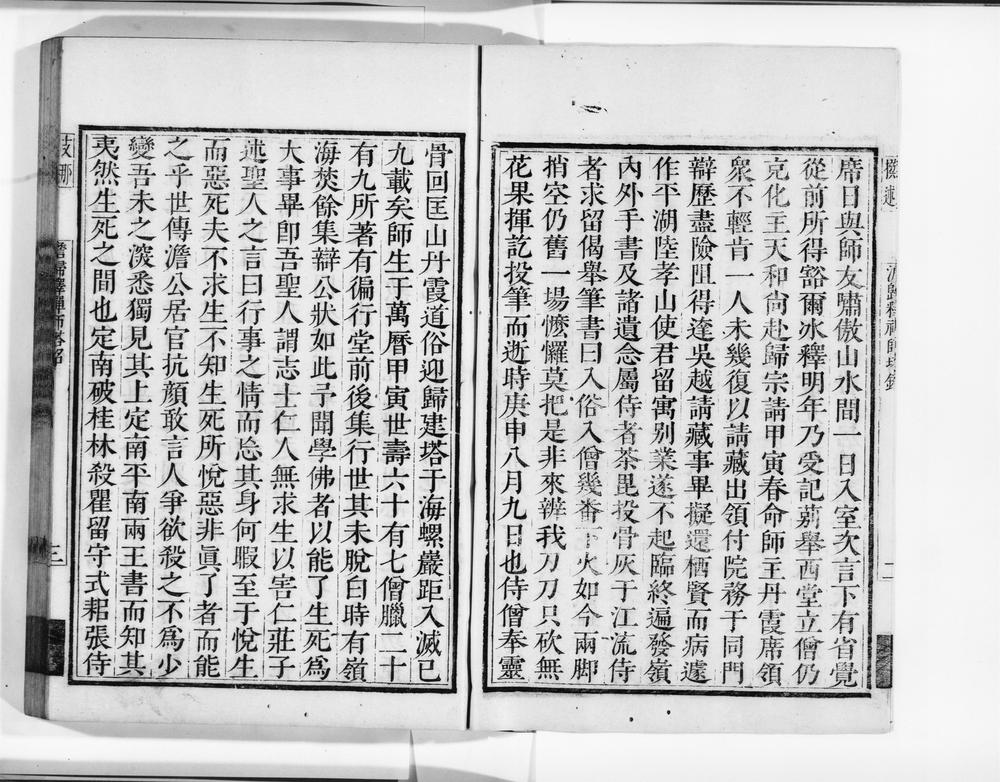 席日與師友嘯傲山水間一日入室次言下有省覺
從前所得豁爾冰釋明年乃受記莂舉西堂立僧仍
克化主天和尙赴歸宗請甲寅春命師主丹霞席領
衆不輕肯一人未幾復以請藏出領付院務于同門
辯歷盡險阻得達吳越請藏事畢擬還栖賢而病遽
作平湖陸孝山使君留寓别業遂不起臨終遍發嶺
內外手書及諸遺念屬侍者茶毘投骨灰于江流侍
者求留偈舉筆書曰入俗入僧幾番下火如今兩脚
捎空仍舊一場懡㦬莫把是非來辨我刀刀只砍無
花果揮訖投筆而逝時庚申八月九日也侍僧奉靈
骨回匡山丹霞道俗迎歸建塔于海螺巖距入滅已
九載矣師生于萬曆甲寅世壽六十有七僧臘二十
有九所著有徧行堂前後集行世其未脫白時有嶺
海焚餘集辯公狀如此予聞學佛者以能了生死爲
大事畢卽吾聖人謂志士仁人無求生以害仁莊子
述聖人之言曰行事之情而忘其身何暇至于悅生
而惡死夫不求生不知生死所悅惡非眞了者而能
之乎世傳澹公居官抗顏敢言人爭欲殺之不爲少
變吾未之深悉獨見其上定南平南兩王書而知其
夷然生死之間也定南破桂林殺瞿留守式耜張侍
二
三